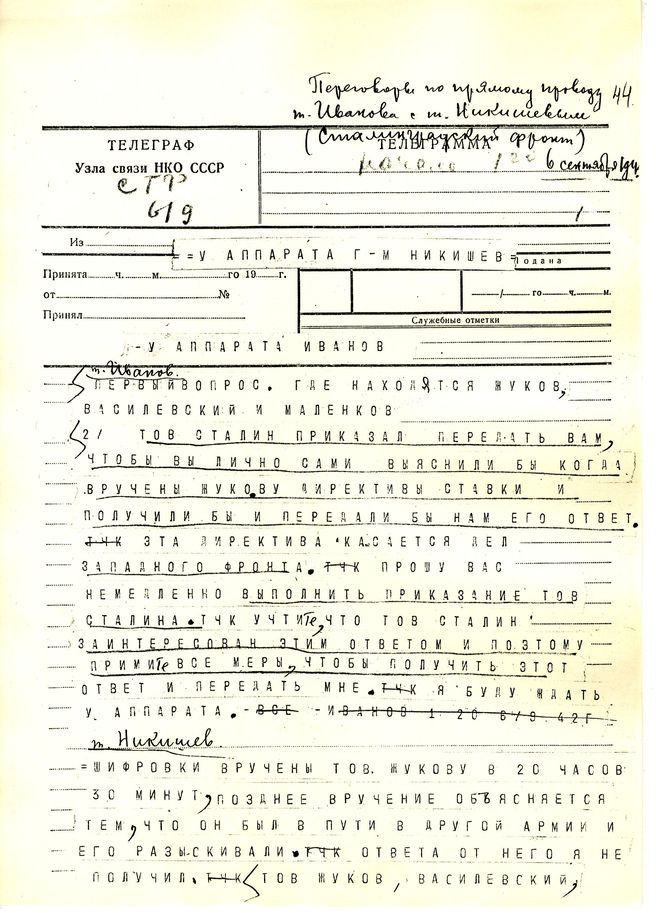 Переговоры по прямому проводу 44
т. Иванова с т. Никишевым
(Сталинградский фронт)
ТЕЛЕГРАФ
Узла связи НКО СССР
ТЕЛЕГРАММА
начало 1 20 6 сентября
СТФ
6/9
Из
=У АППАРАТА Г-М НИКИШЕВ=
Подана
Принята ч. м. го 19 г.
от №
/ го ч. м.
Принял
Служебные отметки
-У АППАРАТА ИВАНОВ
т. Иванов.
ПЕРВЫЙ ВОПРОС. ГДЕ НАХОДЯТСЯ ЖУКОВ,
ВАСИЛЕВСКИЙ И МАЛЕНКОВ
2/ ТОВ СТАЛИН ПРИКАЗАЛ ПЕРЕДАТЬ ВАМ,
ЧТОБЫ ВЫ ЛИЧНО САМИ ВЫЯСНИЛИ БЫ КОГДА
ВРУЧЕНЫ ЖУКОВУ ДИРЕКТИВЫ СТАВКИ И
ПОЛУЧИЛИ БЫ И ПЕРЕДАЛИ БЫ НАМ ЕГО ОТВЕТ.
ТЧК ЭТА ДИРЕКТИВА КАСАЕТСЯ ДЕЛ
ЗАПАДНОГО ФРОНТА. ТЧК ПРОШУ ВАС
НЕМЕДЛЕННО ВЫПОЛНИТЬ ПРИКАЗАНИЕ ТОВ
СТАЛИНА. ТЧК УЧТИТЕ, ЧТО ТОВ СТАЛИН
ЗАИНТЕРЕСОВАН ЭТИМ ОТВЕТОМ И ПОЭТОМУ
ПРИМИТЕ ВСЕ МЕРЫ, ЧТОБЫ ПОЛУЧИТЬ ЭТОТ
ОТВЕТ И ПЕРЕДАТЬ МНЕ. ТЧК Я БУДУ ЖДАТЬ
У АППАРАТА. -ВСЕ -ИВАНОВ 1.20 6/9.42Г
т. Никишев.
=ШИФРОВКИ ВРУЧЕНЫ ТОВ. ЖУКОВУ В 20 ЧАСОВ
30 МИНУТ, ПОЗДНЕЕ ВРУЧЕНИЕ ОБЪЯСНЯЕТСЯ
ТЕМ, ЧТО ОН БЫЛ В ПУТИ В ДРУГОЙ АРМИИ И
ЕГО РАЗЫСКИВАЛИ. ТЧК ОТВЕТА ОТ НЕГО Я НЕ
ПОЛУЧИЛ. ТЧК ТОВ ЖУКОВ, ВАСИЛЕВСКИЙ,